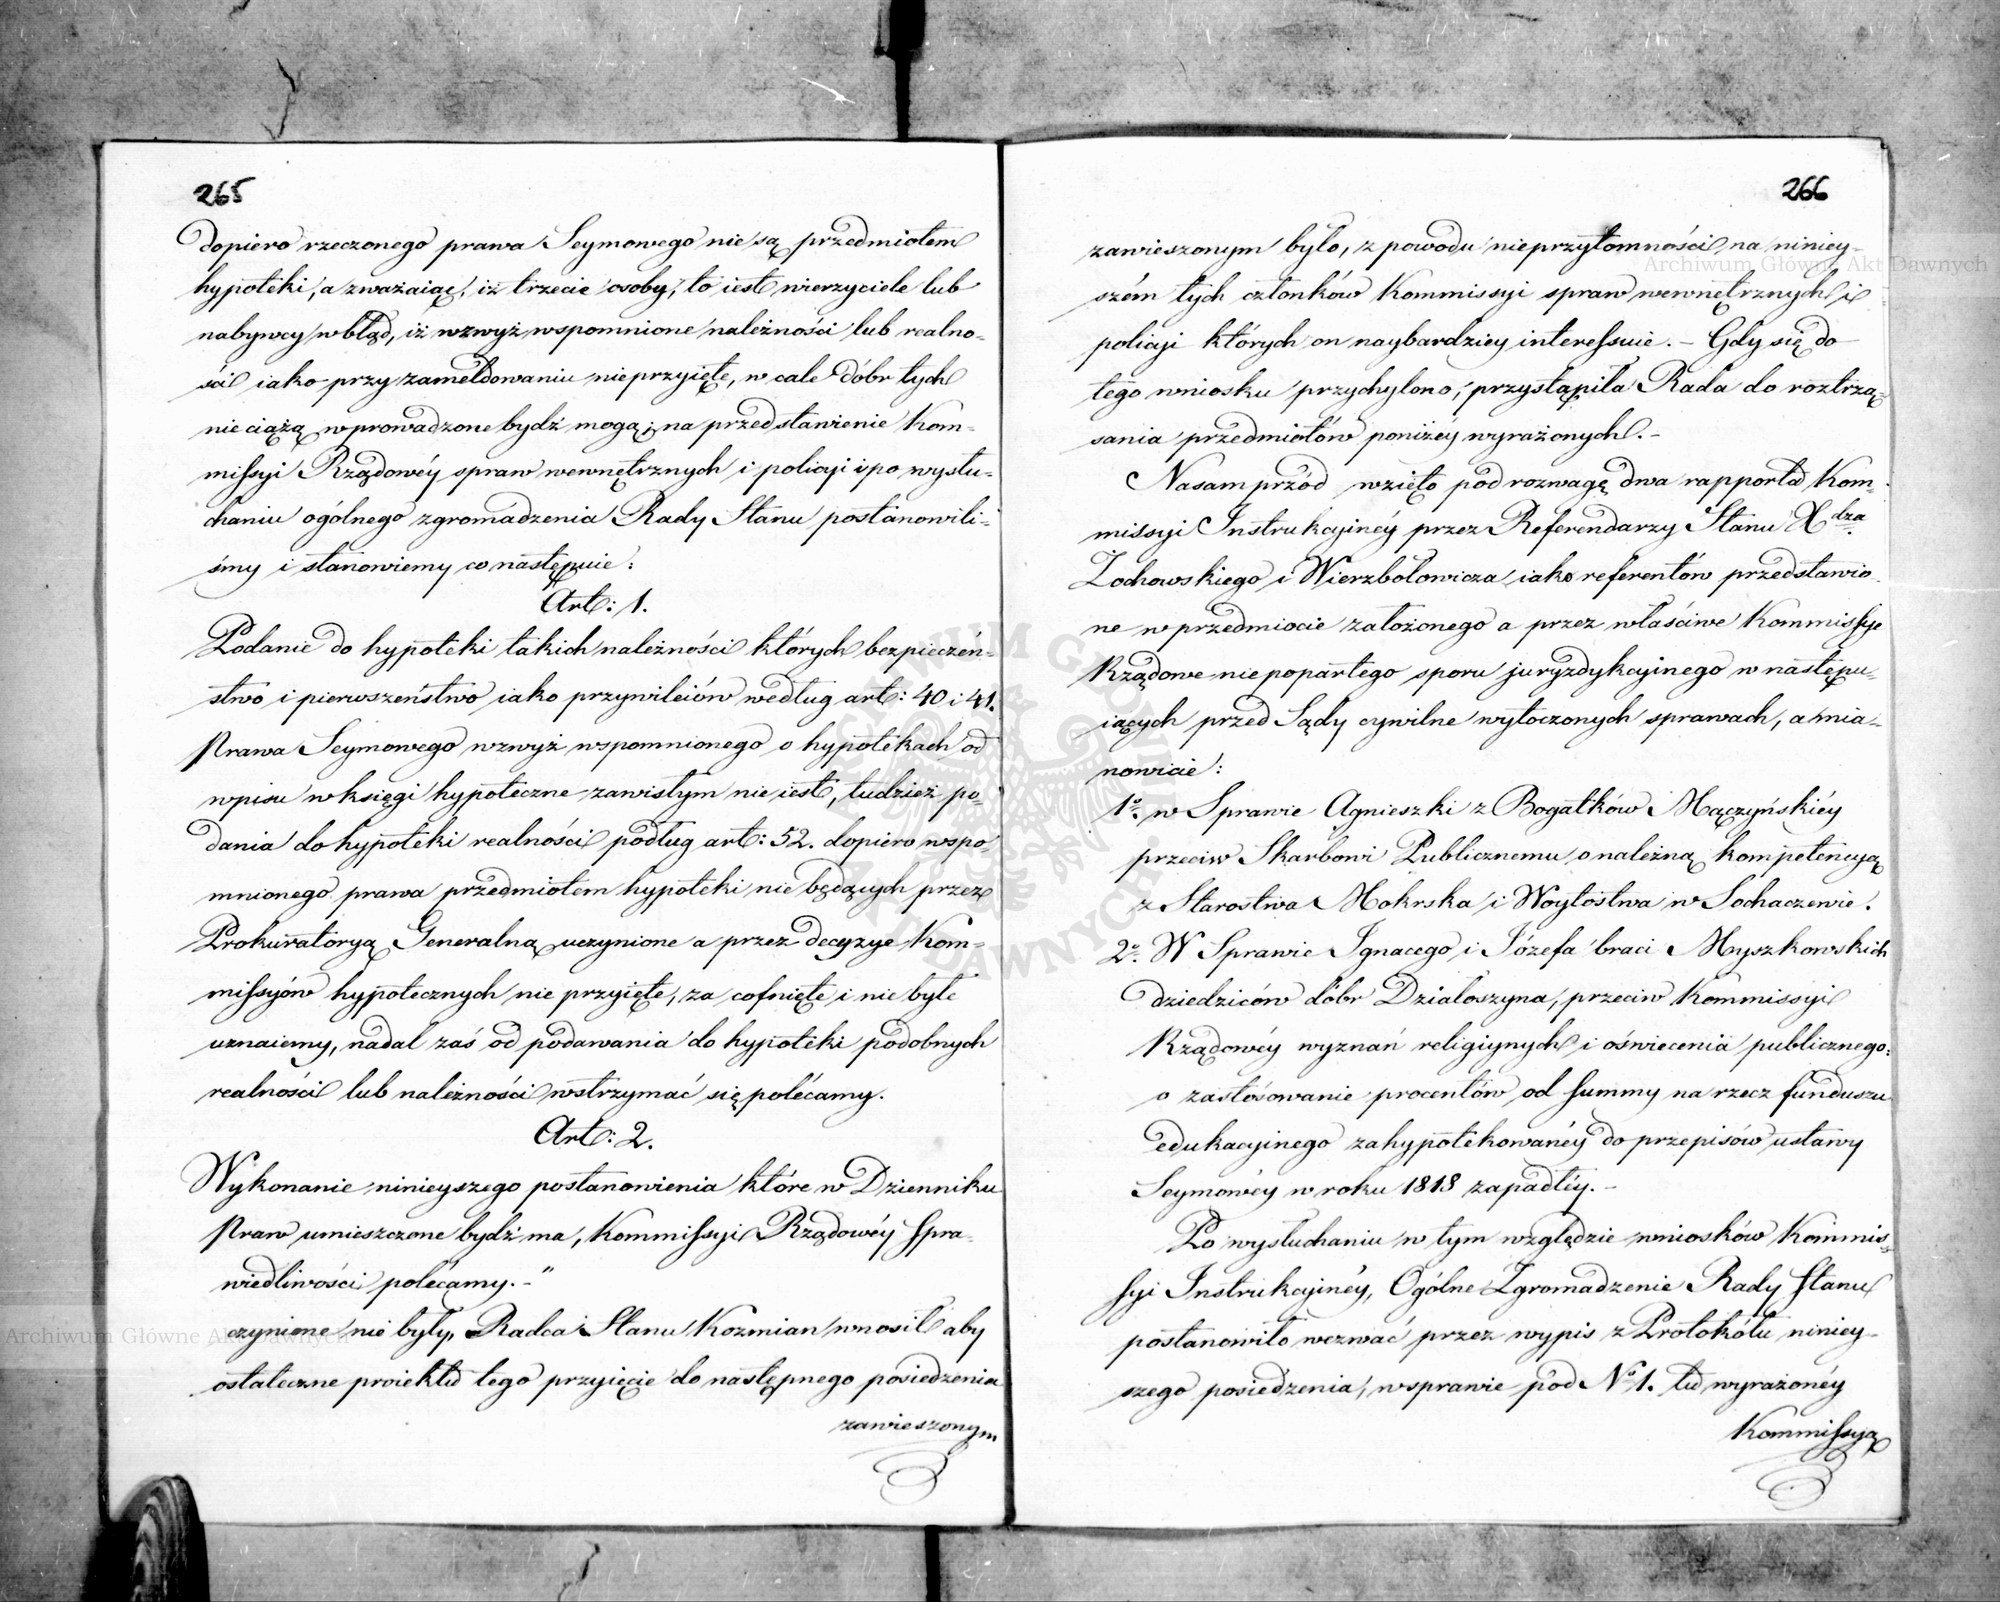 265
dopiero rzeczonego prawa Seymowego nie są przedmiotem
hypoteki, a zważaiąc, iż trzecie osoby, to iest wierzyciele lub
nabywcy w błąd, iż wzwyż wspomnione należności lub realno-
ści iako przy zameldowaniu nieprzyięte, w cale dóbr tych
nie ciążą wprowadzone bydź mogą; na przedstawienie Kom-
missyi Rządowéy spraw wewnętrznych i policyi i po wysłu-
chaniu ogólnego zgromadzenia Rady Stanu postanowili-
śmy i stanowiemy co następuie:
Art: 1.
Podanie do hypoteki takich należności których bezpieczeń-
stwo i pierwszeństwo iako przywileiów według art: 40 i 41.
Prawa Seymowego wzwyż wspomnionego o hypotekach od
wpisu w księgi hypoteczne zawisłym nie iest, tudzież po-
dania do hypoteki realności podług art: 52. dopiero wspo-
mnionego prawa przedmiotem hypoteki nie będących przez
Prokuratoryą Generalną uczynione a przez decyzye Kom-
missyów hypotecznych nie przyięte, za cofnięte i nie byłe
uznaiemy, nadal zaś od podawania do hypoteki podobnych
realności lub należności wstrzymać się polécamy.
Art: 2.
Wykonanie ninieyszego postanowienia które w Dzienniku
Praw umieszczone bydź ma, Kommissyi Rządowéy Spra-
wiedliwości polécamy.-"
czynione nie były, Radca Stanu Kozmian wnosił aby
ostateczne proiektu tego przyięcie do następnego posiedzenia
zawieszonym
266
zawieszonym było, z powodu nieprzytomności na niniey-
szém tych członków Kommissyi spraw wewnętrznych i
policyi których on naybardziey interessuie. - Gdy się do
tego wniosku przychylono, przystąpiła Rada do roztrzą-
sania przedmiotów poniżéy wyrażonych.-
Nasamprzód wzięto pod rozwagę dwa rapporta Kom-
missyi Instrukcyinéy przez Referendarzy Stanu Xdza
Zochowskiego i Wierzbołowicza iako referentów przedstawio-
ne w przedmiocie założonego a przez właściwe Kommissye
Rządowe niepopartego sporu juryzdykcyinego w następu-
iących przed Sądy cywilne wytoczonych sprawach, a mia-
nowicie:
1o. w Sprawie Agnieszki z Bogatków Mączyńskiéy
przeciw Skarbowi Publicznemu o należną kompetencyą
z Starostwa Mokrska i Woytostwa w Sochaczewie.
2o. W Sprawie Ignacego i Józefa braci Myszkowskich
dziedziców dóbr Działoszyna, przeciw Kommissyi
Rządowéy wyznań religiynych i oświecenia publicznego:
o zastósowanie procentów od summy na rzecz funduszu
edukacyinego zahypotekowanéy do przepisów ustawy
Seymowéy w roku 1818 zapadłéy.-
Po wysłuchaniu w tym względzie wniosków Kommis-
syi Instrukcyinéy, Ogólne Zgromadzenie Rady Stanu
postanowiło wezwać przez wypis z Protokółu niniey-
szego posiedzenia, w sprawie pod No 1. tu wyrażonéy
Kommissyą
Archiwum Główne Akt Dawnych
Archiwum Główne Akt Dawnych
ARCHIWUM GŁÓWNE AKT DAWNYCH